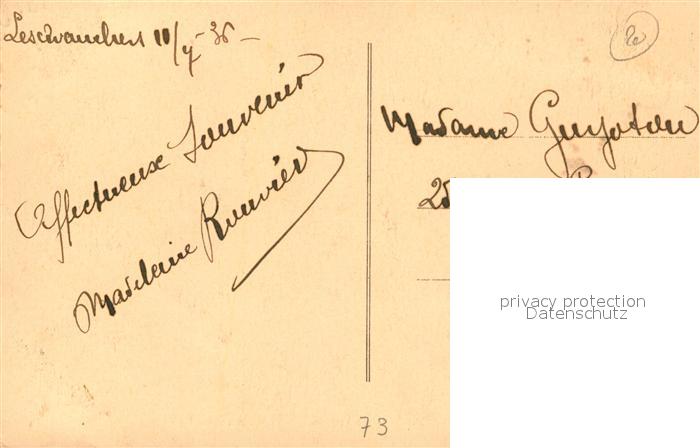 11/7-36-
Affectueux Souvenir
Madeleine Rouvier
Madame
25
privacy protection
Datenschutz
73